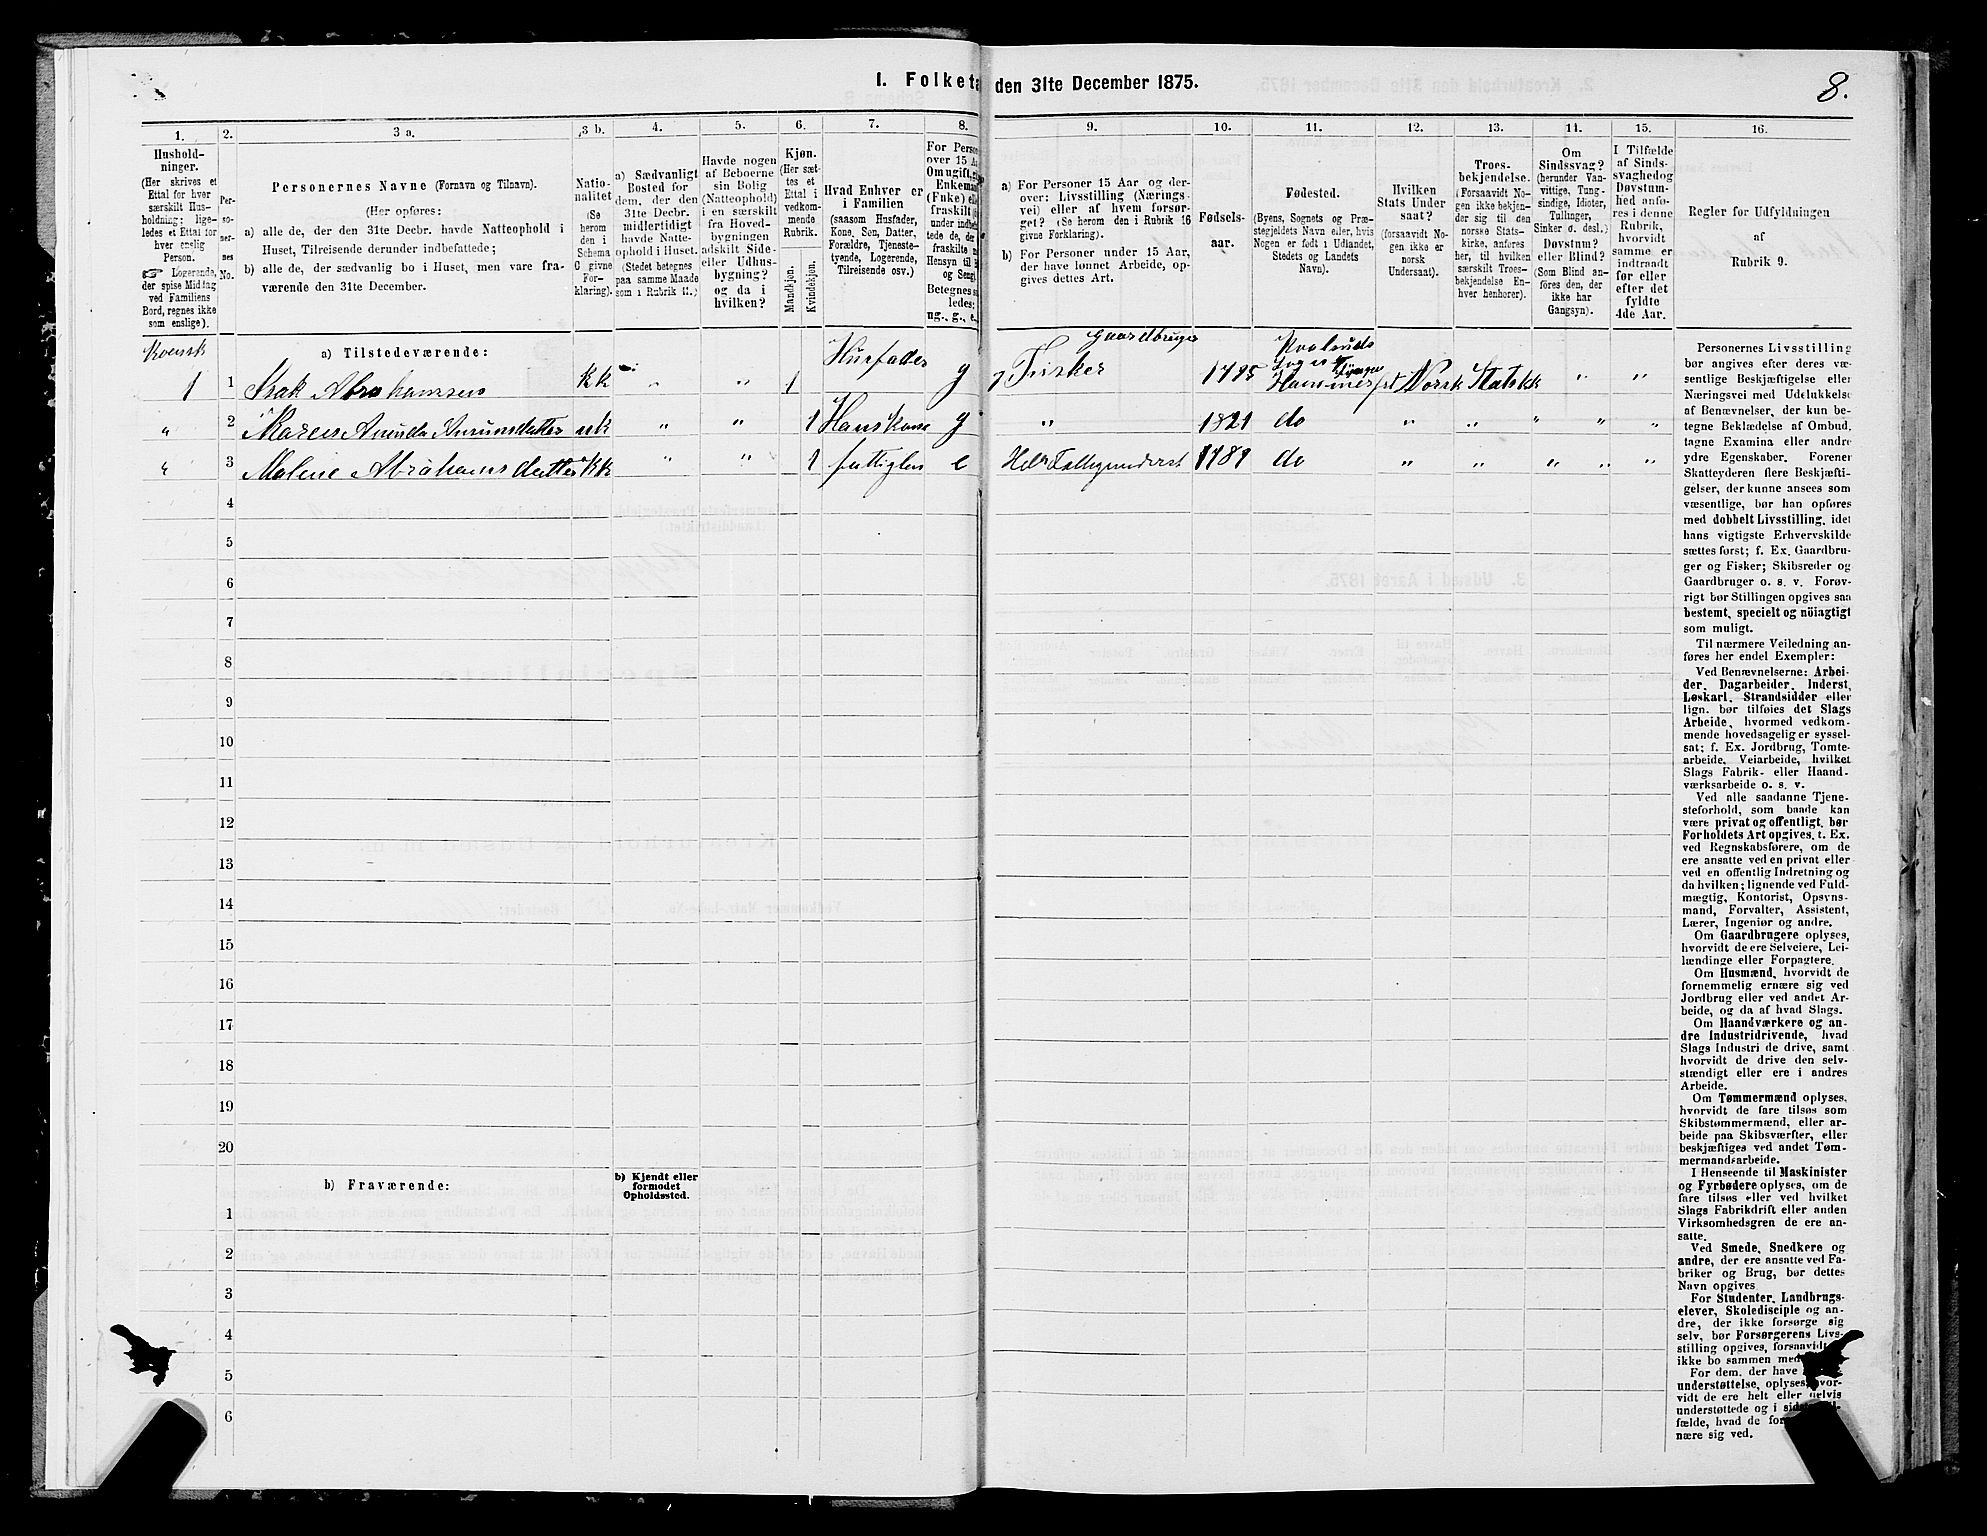 I. Folketæ den 31te December 1875.
8.
1.
Hushold-
ninger.
(Her skrives et
Ettal for hver
særskilt Hus-
holdning; lige-
ledes et Ettal for
hver enslig
Person.
☞ Logerende,
der spise Middag
ved Familiens
Bord, regnes ikke
som enslige).
2.
Per-
so-
ner-
nes
No.
3 a.
Personernes Navne (Fornavn og Tilnavn).
(Her opføres:
a) alle de, der den 31te Decbr. havde Natteophold i
Huset, Tilreisende derunder indbefattede;
b) alle de, der sædvanlig bo i Huset, men vare fra-
værende den 31te December.
3 b.
Natio-
nalitet
(Se
herom
den i
Schema
6 givne
For-
klaring).
4.
a) Sædvanligt
Bosted for
dem, der den
31te Decbr.
midlertidigt
havde Natte-
ophold i Huset.
(Stedet betegnes
paa samme Maade
som i Rubrik 11.)
5.
Havde nogen
af Beboerne
sin Bolig
(Natteophold)
i en særskilt
fra Hoved-
bygningen
adskilt Side-
eller Udhus-
bygning?
og da i
hvilken?
6.
Kjøn.
(Her sæt-
tes et
Ettal i
vedkom-
mende
Rubrik.
Mandkjøn.
Kvindekjøn.
7.
Hvad Enhver er
i Familien
(saasom Husfader,
Kone, Søn, Datter,
Forældre, Tjeneste-
tyende, Logerende,
Tilreisende osv.)
8.
For Person
over 15 Aa
Om ugift, gi
Enkemand
(Fnke) elle
fraskilt
under indbe
tede de, der
fraskilte
Hensyn til
og Seng.
Betegnes sa
ledes:
ug., g., e.,
9.
a) For Personer 15 Aar og der-
over: Livsstilling (Nærings-
vei) eller af hvem forsør-
get? (Se herom den i Rubrik 16
givne Forklaring).
b) For Personer under 15 Aar,
der have lønnet Arbeide, op-
gives dettes Art.
10.
Fødsels-
aar.
11.
Fødested.
(Byens, Sognets og Præ-
stegjeldets Navn eller, hvis
Nogen er født i Udlandet,
Stedets og Landets
Navn).
12.
Hvilken
Stats Under
saat?
(forsaavidt No-
gen ikke er
norsk
Undersaat).
13.
Troes-
bekjendelse.
(Forsaavidt No-
gen ikke bekjen-
der sig til den
norske Stats-
kirke, anføres
her, til hvilken
særskilt Troes-
bekjendelse En-
hver henhorer).
14.
Om
Sindssvag?
(herunder Van-
vittige, Tung-
sindige, Idioter,
Tullinger,
Sinker o. desl.)
Døvstum?
eller Blind?
(Som Blind an-
føres den, der
ikke har
Gangsyn).
15.
I Tilfælde
af Sinds-
svaghed og
Døvstum-
hed anfø-
res i denne
Rubrik,
hvorvidt
samme er
indtraadt
før eller
efter det
fyldte
4de Aar.
16.
Regler for Udfyldningen
af
Rubrik 9.
Kvensk
a) Tilstedeværende:
1 1 Isak Abrahamsen KK „ „ 1 Husfader g Gaardbruger og Fisker 1795 Norsk Statskk „ „
„ 2 Maren Amunda nk „ „ 1 Hans Kone g „ 1821 do „ „ „ „ „
„ 3 Malene Abrahams datter KK „ „ 1 fattiglem e 1781 do „ „ „ „ „
4
5
6
7
8
9
10
11
12
13
14
15
16
17
18
19
20
b) Fraværende:
b) Kjendt eller
formodet
Opholdssted.
1
2
3
4
5
6
Personernes Livsstilling
bør angives efter deres væ-
sentlige Beskjæftigelse eller
Næringsvei med Udelukkelse
af Benævnelser, der kun be-
tegne Beklædelse af Ombud,
tagne Examina eller andre
ydre Egenskaber. Forener
Skatteyderen flere Beskjæfti-
gelser, der kunne ansees som
væsentlige, bør han opføres
med dobbelt Livsstilling, idet
hans vigtigste Erhvervskilde
sættes først; f. Ex. Gaardbru-
ger og Fisker; Skibsreder og
Gaardbruger o. s. v. Forøv-
rigt bør Stillingen opgives saa
bestemt, specielt og nöiagtigt
som muligt.
Til nærmere Veiledning an-
føres her endel Exempler:
Ved Benævnelserne: Arbei-
der, Dagarbeider, Inderst,
Løskarl, Strandsidder eller
lign. bør tilføies det Slags
Arbeide, hvormed vedkom-
mende hovedsagelig er syssel-
sat; f. Ex. Jordbrug, Tomte-
arbeide, Veiarbeide, hvilket
Slags Fabrik- eller Haand-
værksarbeide o. s. v.
Ved alle saadanne Tjene-
steforhold, som baade kan
være privat og offentligt, bør
Forholdets Art opgives, t. Ex.
ved Regnskabsførere, om de
ere ansatte ved en privat eller
ved en offentlig Indretning og
da hvilken; lignende ved Fuld-
mægtig, Kontorist, Opsyns-
mand, Forvalter, Assistent,
Lærer, Ingeniør og andre.
Om Gaardbrugere oplyses,
hvorvidt de ere Selveiere, Lei-
lændinge eller Forpagtere.
Om Husmænd, hvorvidt de
fornemmelig ernære sig ved
Jordbrug eller ved andet Ar-
beide, og da af hvad Slags.
Om Haandværkere og an-
dre Industridrivende, hvad
Slags Industri de drive, samt
hvorvidt de drive den selv-
stændigt eller ere i andres
Arbeide.
Om Tømmermænd oplyses,
hvorvidt de fare tilsøs som
Skibstømmermænd, eller ar-
beide paa Skibsværfter, eller
beskjæftiges ved andet Tøm-
mermandsarbeide.
I Henseende til Maskinister
og Fyrbødere oplyses, om de
fare tilsøs eller ved hvilket
Slags Fabrikdrift eller anden
Virksomhedsgren de ere an-
satte.
Ved Smede, Snedkere og
andre, der ere ansatte ved Fa-
briker og Brug, bør dettes
Navn opgives
For Studenter, Landbrugs-
elever, Skoledisciple og an-
dre, der ikke forsørge sig
selv, bør Forsørgerens Livs-
stilling opgives, forsaavidt
ikke bo sammen med
For dem, der have
understøttelse, oplyses, hvor-
vidt de ere helt eller delvis
understøttede og i sidste
fælde, hvad de
nære sig ved.